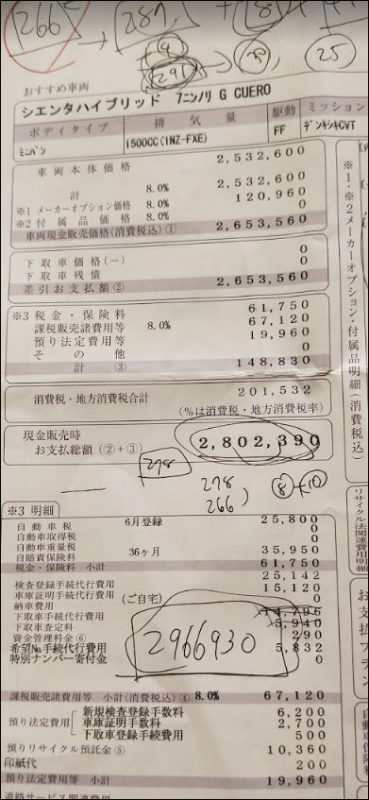 266
287
291
25
おすすめ車両
シエンタハイブリッド 7ニンノリ G CUERO
ボディタイプ 排気量 駆動 ミッション
ミニバン 1500CC(1NZ-FXE) FF デンキシキCVT
車両本体価格 2,532,600
計 8.0% 2,532,600
※1 メーカーオプション価格 8.0% 120,960
※2 付属品価格 8.0% 0
車両現金販売価格(消費税込)① 2,653,560
下取車価格(−) 0
下取車残債 0
差引お支払額② 2,653,560
※3 税金・保険料 61,750
課税販売諸費用等 8.0% 67,120
預り法定費用等 19,960
その他 0
計 ③ 148,830
消費税・地方消費税合計 201,532
(%は消費税・地方消費税率)
現金販売時
お支払総額(②+③) 2,802,390
278
278
266
⑧+⑩
※3 明細
自動車税 6月登録 25,800
自動車取得税 0
自動車重量税 0
自賠責保険料 36ヶ月 35,950
税金・保険料 小計 61,750
検査登録手続代行費用 25,142
車庫証明手続代行費用 15,120
納車費用 (ご自宅) 0
下取車手続代行費用 14,796
下取車査定料 5,940
資金管理料金⑥ 290
希望No.手続代行費用 5,832
特別ナンバー寄付金 0
2966930
課税販売諸費用等 小計(消費税込)④ 8.0% 67,120
預り法定費用 新規検査登録手数料 6,200
車庫証明手数料 2,700
下取車登録手数料 500
預りリサイクル預託金⑤ 10,360
印紙代 200
預り法定費用等 小計 19,960
道路サービス関連費用
※1・※2メーカーオプション・付属品明細(消費税込)
リサイクル法関連費用明細
お支払プラン